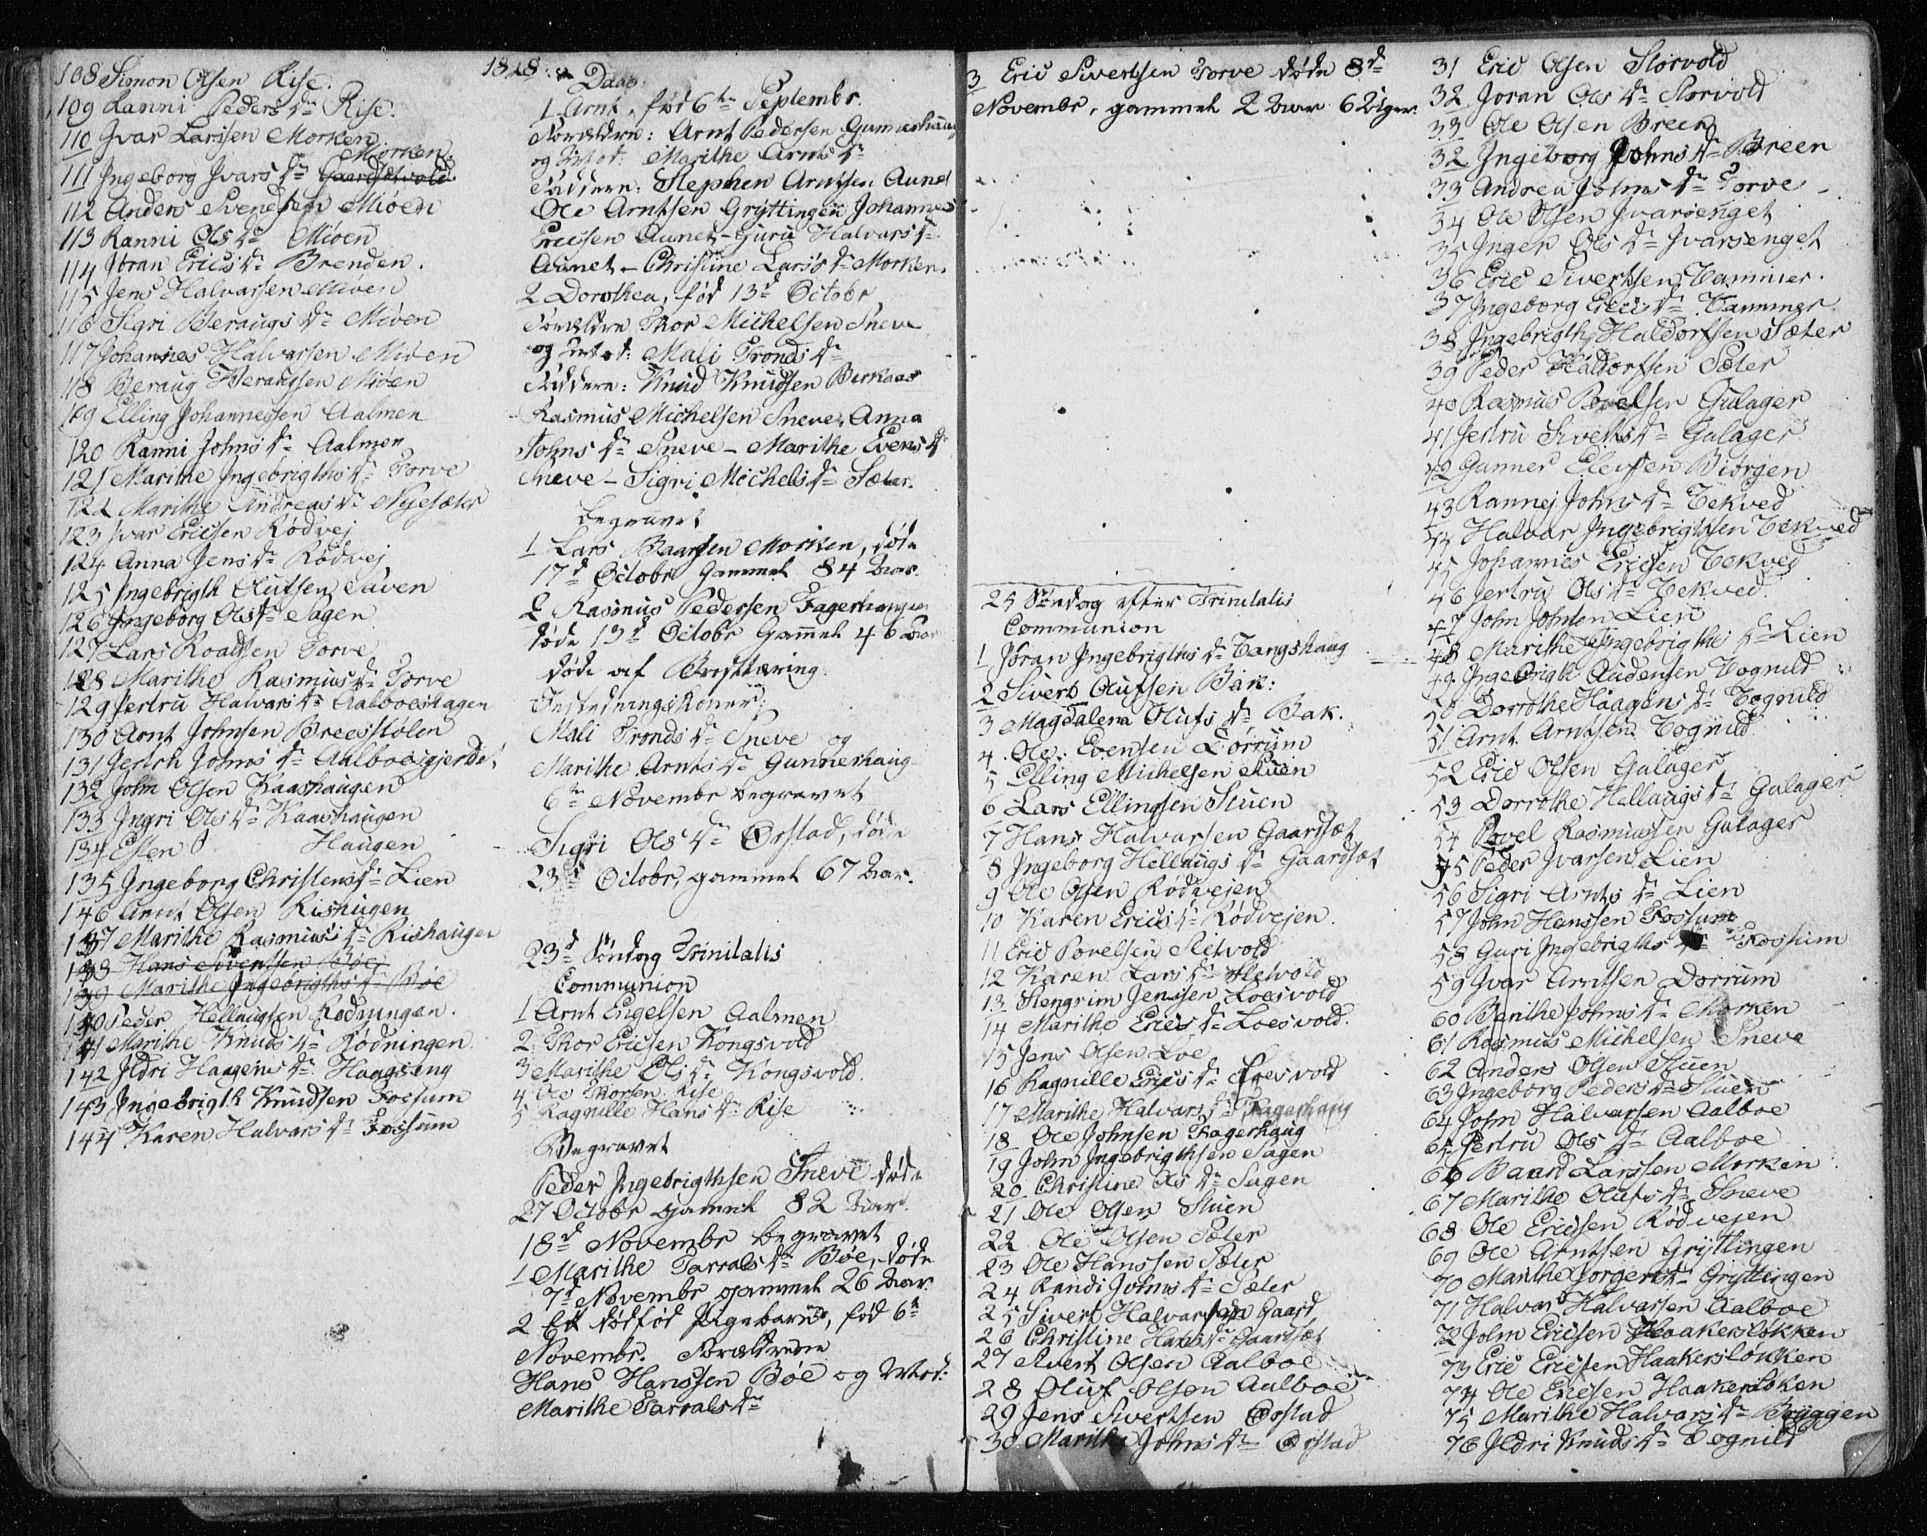 108 Simon Olsen Rise
109 Ranni Peders Dr Rise.
110 Ivar Larssen Morken
Morken
111 Ingeborg Ivars Dr
112 Anders Svendsen Miöen
113 Ranni Ols Dr Miöen
114 Jöran Erics Dr Brenden.
115 Jens Halvarsen Miöen
116 Sigri Beraugs Dr Miöen
117 Johannes Halvarsen Miöen
118 Beraug Beraugsen Miöen
119 Elling Johannessen Aalmen
120 Ranni Johns Dr Aalmen
121 Marithe Ingebrigths Dr Torve
122 Marithe Andreas Dr Nyesæter
123 Ivar Ericsen Rödvej
124 Anna Jens Dr Rödvej
125 Ingebrigth Olufsen
126 Ingeborg Ols Dr Sagen
127 Lars Roaldsen Torve
128 Marithe Rasmus Dr Torve
129 Jertru Halvars Dr Aalboeshagen
130 Arnt Johnsen Breesstölen
131 Johns Dr Aalboesgjerdet
132 John Olsen Kaashaugen
133 Ingri Ols Dr Kaashaugen
134 Esten Haugen
135 Ingeborg Christens Dr Lien
146 Arnt Olsen Rishugen
137 Marithe Rasmus Dr Rishaugen
138 Hans Sivertsen Böe
139 Marithe Ingebrigths Dr Böe
140 Peder Hellaugsen Rödningen.
141 Marithe Knuds Dr Rödningen.
142 Ildri Haagens Dr Haagseng
143 Ingebrigth Knudsen Fossum
144 Karen Halvars Dr Fossum
1818. Daab
1 Arnt, föd 6te Septembr.
Foreldre: Arnt Pedersen Gunneshaug
og Marithe Arnts Dr
Faddere: Stephen Arntsen Aunet
Ole Arntsen Gryttingen Johannes
Ericsen Aunet - Guru Halvars Dr
Aunet - Christine Lars Dr Morken.
2 Dorothea, föd 13d Octobr
Foreldre Thor Michelsen Sneve
og Mali Tronds Dr
Faddere: Knud Knudsen Birkaas
Rasmus Michelsen Sneve, Anna
Johns Dr Sneve - Marithe Evens Dr
Sneve - Sigri Michels Dr Sæter.
begravet
1 Lars Baarsen Morken, döde
17d Octobr Gammel 84 Aar.
2 Rasmus Pedersen Fagerhaugen
döde 13d Octobr Gamel 46 Aar
döde af Brysttæring.
Mali Tronds Dr Sneve og
Marithe Arnts Dr Gunneshaug
6te Novembr begravet
Sigri Ols Dr Örstad, döde
23d Octobr, gammel 67 Aar.
23d Söndag Trinitatis
Communion
1 Arnt Engelsen Aalmen
2 Thor Ericsen Kongsvold
3 Marithe Ols Dr Kongsvold.
4 Ole Thorsen Rise
5 Ragnille Hans Dr Rise
Begravet
Peder Ingebrigthsen Sneve döde
27 Octobr gammel 82 Aar.
18d Novembr begravet
1 Marithe Tarrals Dr Böe, döde
7d Novembr gammel 26 Aar.
2 Et dödföd Pigebarn, föd 6te
Novembr. Forældrene
Hans Hanssen Böe og
Marithe Tarrals Dr
3 Eric Sivertsen Torve döde 8d
Novembr, gammel 2 Aar 6 Uger.
25 Söndag efter Trinitatis
Communion
1 Jöran Ingebrigths Dr Vangshaug
2 Sivert Olufsen Bak:
3 Magdalena Olufs Dr Bak.
4 Ole Evensen Dörrum
5 Elling Michelsen Stuen
6 Lars Ellingsen Stuen
7 Hans Halvarsen Gaardsæt
8 Ingeborg Hellaugs Dr Gaardsæt
9 Ole Olsen Rödvejen
10 Karen Erics Dr Rödvejen.
11 Eric Povelsen Sletvold
12 Karen Lars Dr Sletvold
13 Stengrim Jenssen Loesvold
14 Marithe Erics Dr Loesvold.
15 Jens Olsen Loe
16 Ragnille Erics Dr Loesvold
17 Marithe Halvars Dr Fagerhaug
18 Ole Johnsen Fagerhaug
19 John Ingebrigthsen Sagen
20 Christine Ols Dr Sagen
21 Ole Olsen Stuen
22 Ole Olsen Sæter
23 Ole Hanssen Sæter
24 Randi Johns Dr Sæter
25 Sivert Halvarsen Gaard
26 Christine Hans Dr Gaardsæt
27 Sivert Olsen Aalboe
28 Oluf Olsen Aalboe
29 Jens Sivertsen Örstad
30 Marithe Johns Dr Örstad
31 Eric Olsen Storvold
32 Joran Ols Dr Storvold
33 Ole Olsen Breen
32 Ingeborg Johns Dr Breen
33 Andrea Johns Dr Torve
34 Ole Olsen Ivarsenget
35 Inger Ols Dr Ivarsenget
36 Eric Sivertsen Hammer.
37 Ingeborg Erics Dr Hammer
38 Ingebrigth Haldorssen Sæter
39 Peder Haldorssen Sæter
40 Rasmus Povelsen Gulager
41 Jertru Siverts Dr Gulager
42 Gunner Elevsen Biörgen
43 Rannej Johns Dr Vekved
44 Halvar Ingebrigthsen Vekved
45 Johannes Ericsen Vekved
46 Jertru Ols Dr Vekved.
47 John Johnsen Lien
48 Marithe Ingebrigths Dr Lien
49 Ingebrigth Audensen Vognild
50 Dorrothe Haagens Dr Vognild
51 Arnt Arntsen Vognild
52 Eric Olsen Gulager
53 Dorrothe Hellaugs Dr Gulager
54 Povel Rasmussen Gulager
55 Peder Ivarsen Lien
56 Sigri Arnts Dr Lien
57 John Hanssen Fossum
58 Guri Ingebrigths Dr Fossum
59 Ivar Arntsen Dorrum
60 Benthe Johns Dr Morken
61 Rasmus Michelsen Sneve
62 Anders Olsen Stuen
63 Ingeborg Peders Dr Stuen
64 John Halvarsen Aalboe
65 Jertru Ols Dr Aalboe
66 Baard Larssen Morken
67 Marithe Olufs Dr Sneve
68 Ole Ericsen Rödvejen
69 Ole Arntsen Gryttingen
70 Marithe Jorgens Dr Gryttingen
71 Halvar Halvarsen Aalboe
72 John Ericsen Haakerslökken
73 Eric Ericsen Haakerslökken
74 Ole Ericsen Haakerslöken
75 Marithe Halvars Dr Byggen
76 Ildri Knuds Dr Vognild